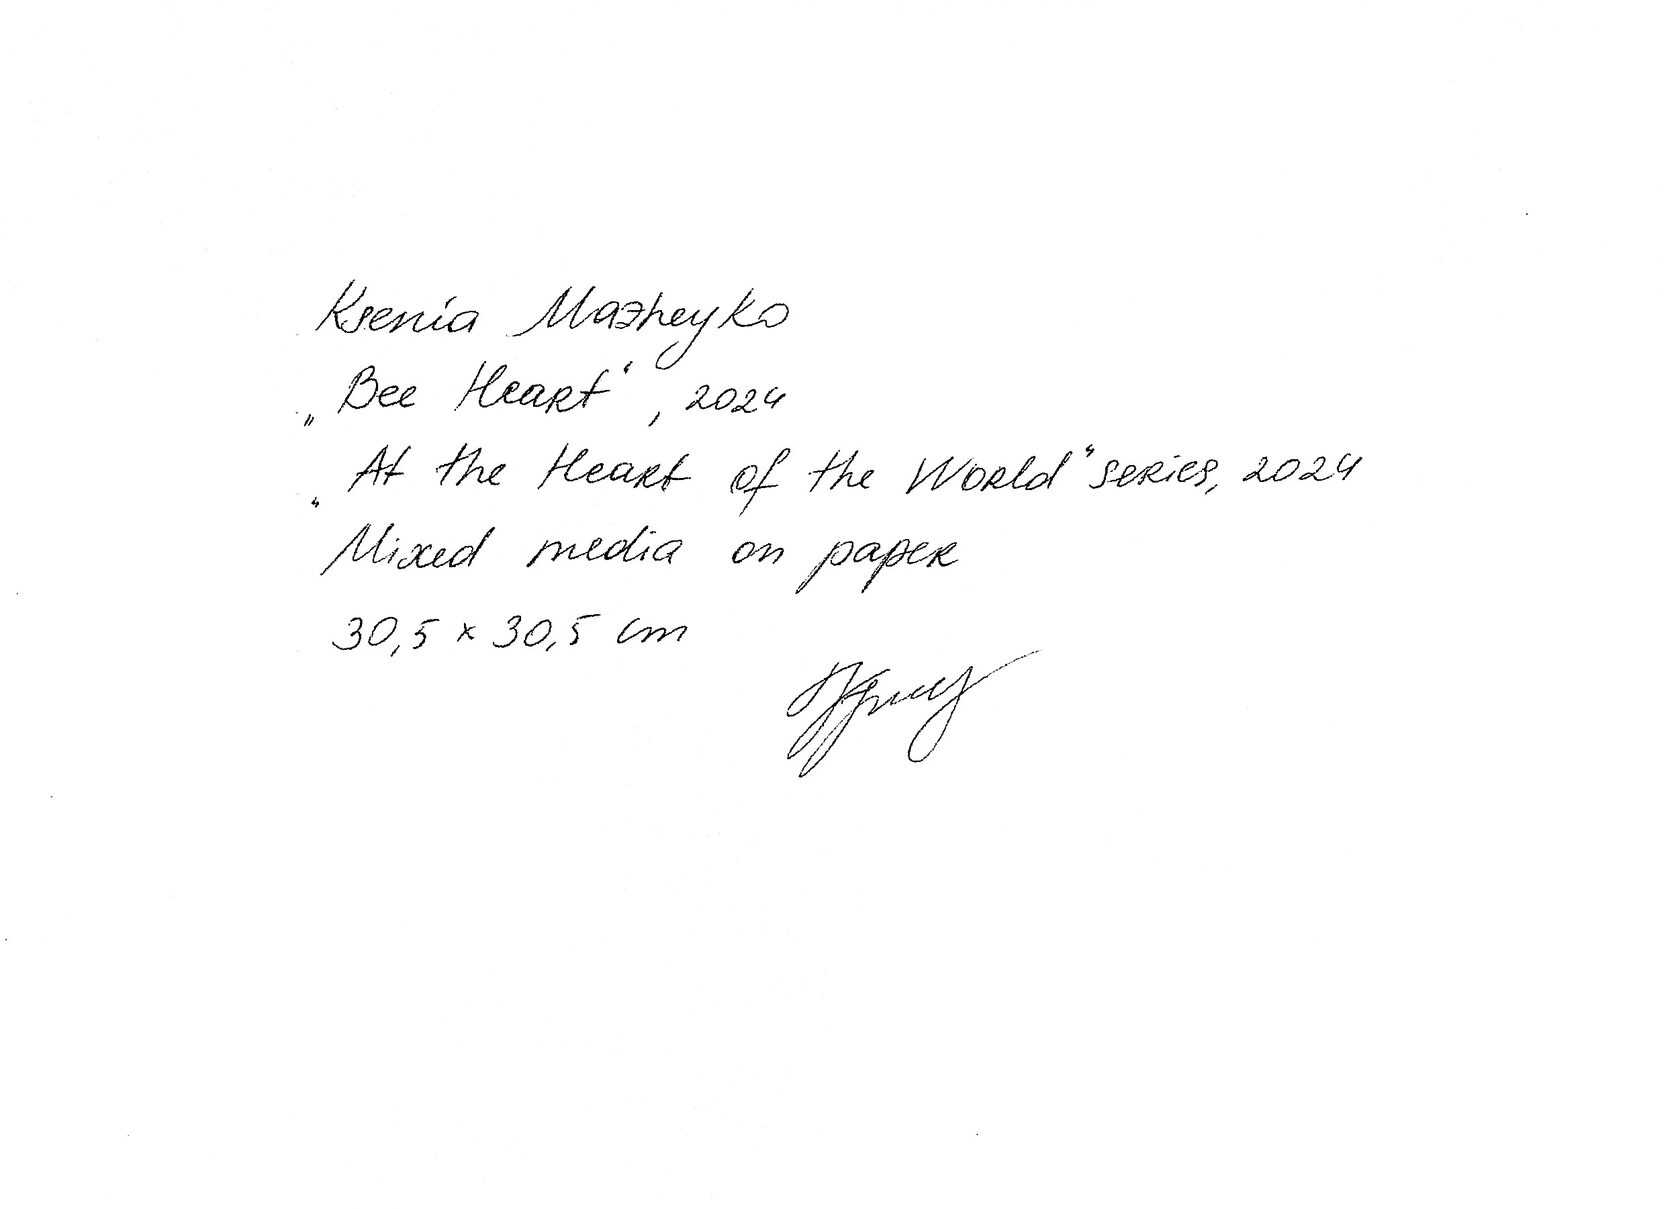 Ksenia Mazheyko
„Bee Heart“, 2024
„At the Heart of the World“ series, 2024
Mixed media on paper
30,5 x 30,5 cm